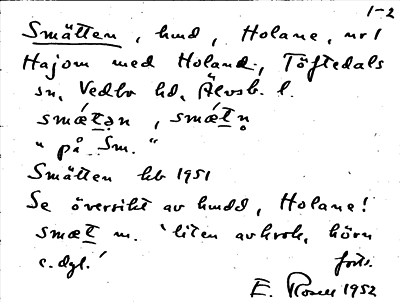 1-2
Smätten, hmd, Holane, nr 1
Hajom med Holand., Töftedals
sn, Vedbo hd, Älvsb. l.
smǽt̲ən, smǽt̲n̥
" på Sm. "
Smätten hb 1951
Se översikt av hmdd, Holane!
smæt̲ m. 'liten avkrok, hörn
o. dyl.' forts.
E. Rosell 1952